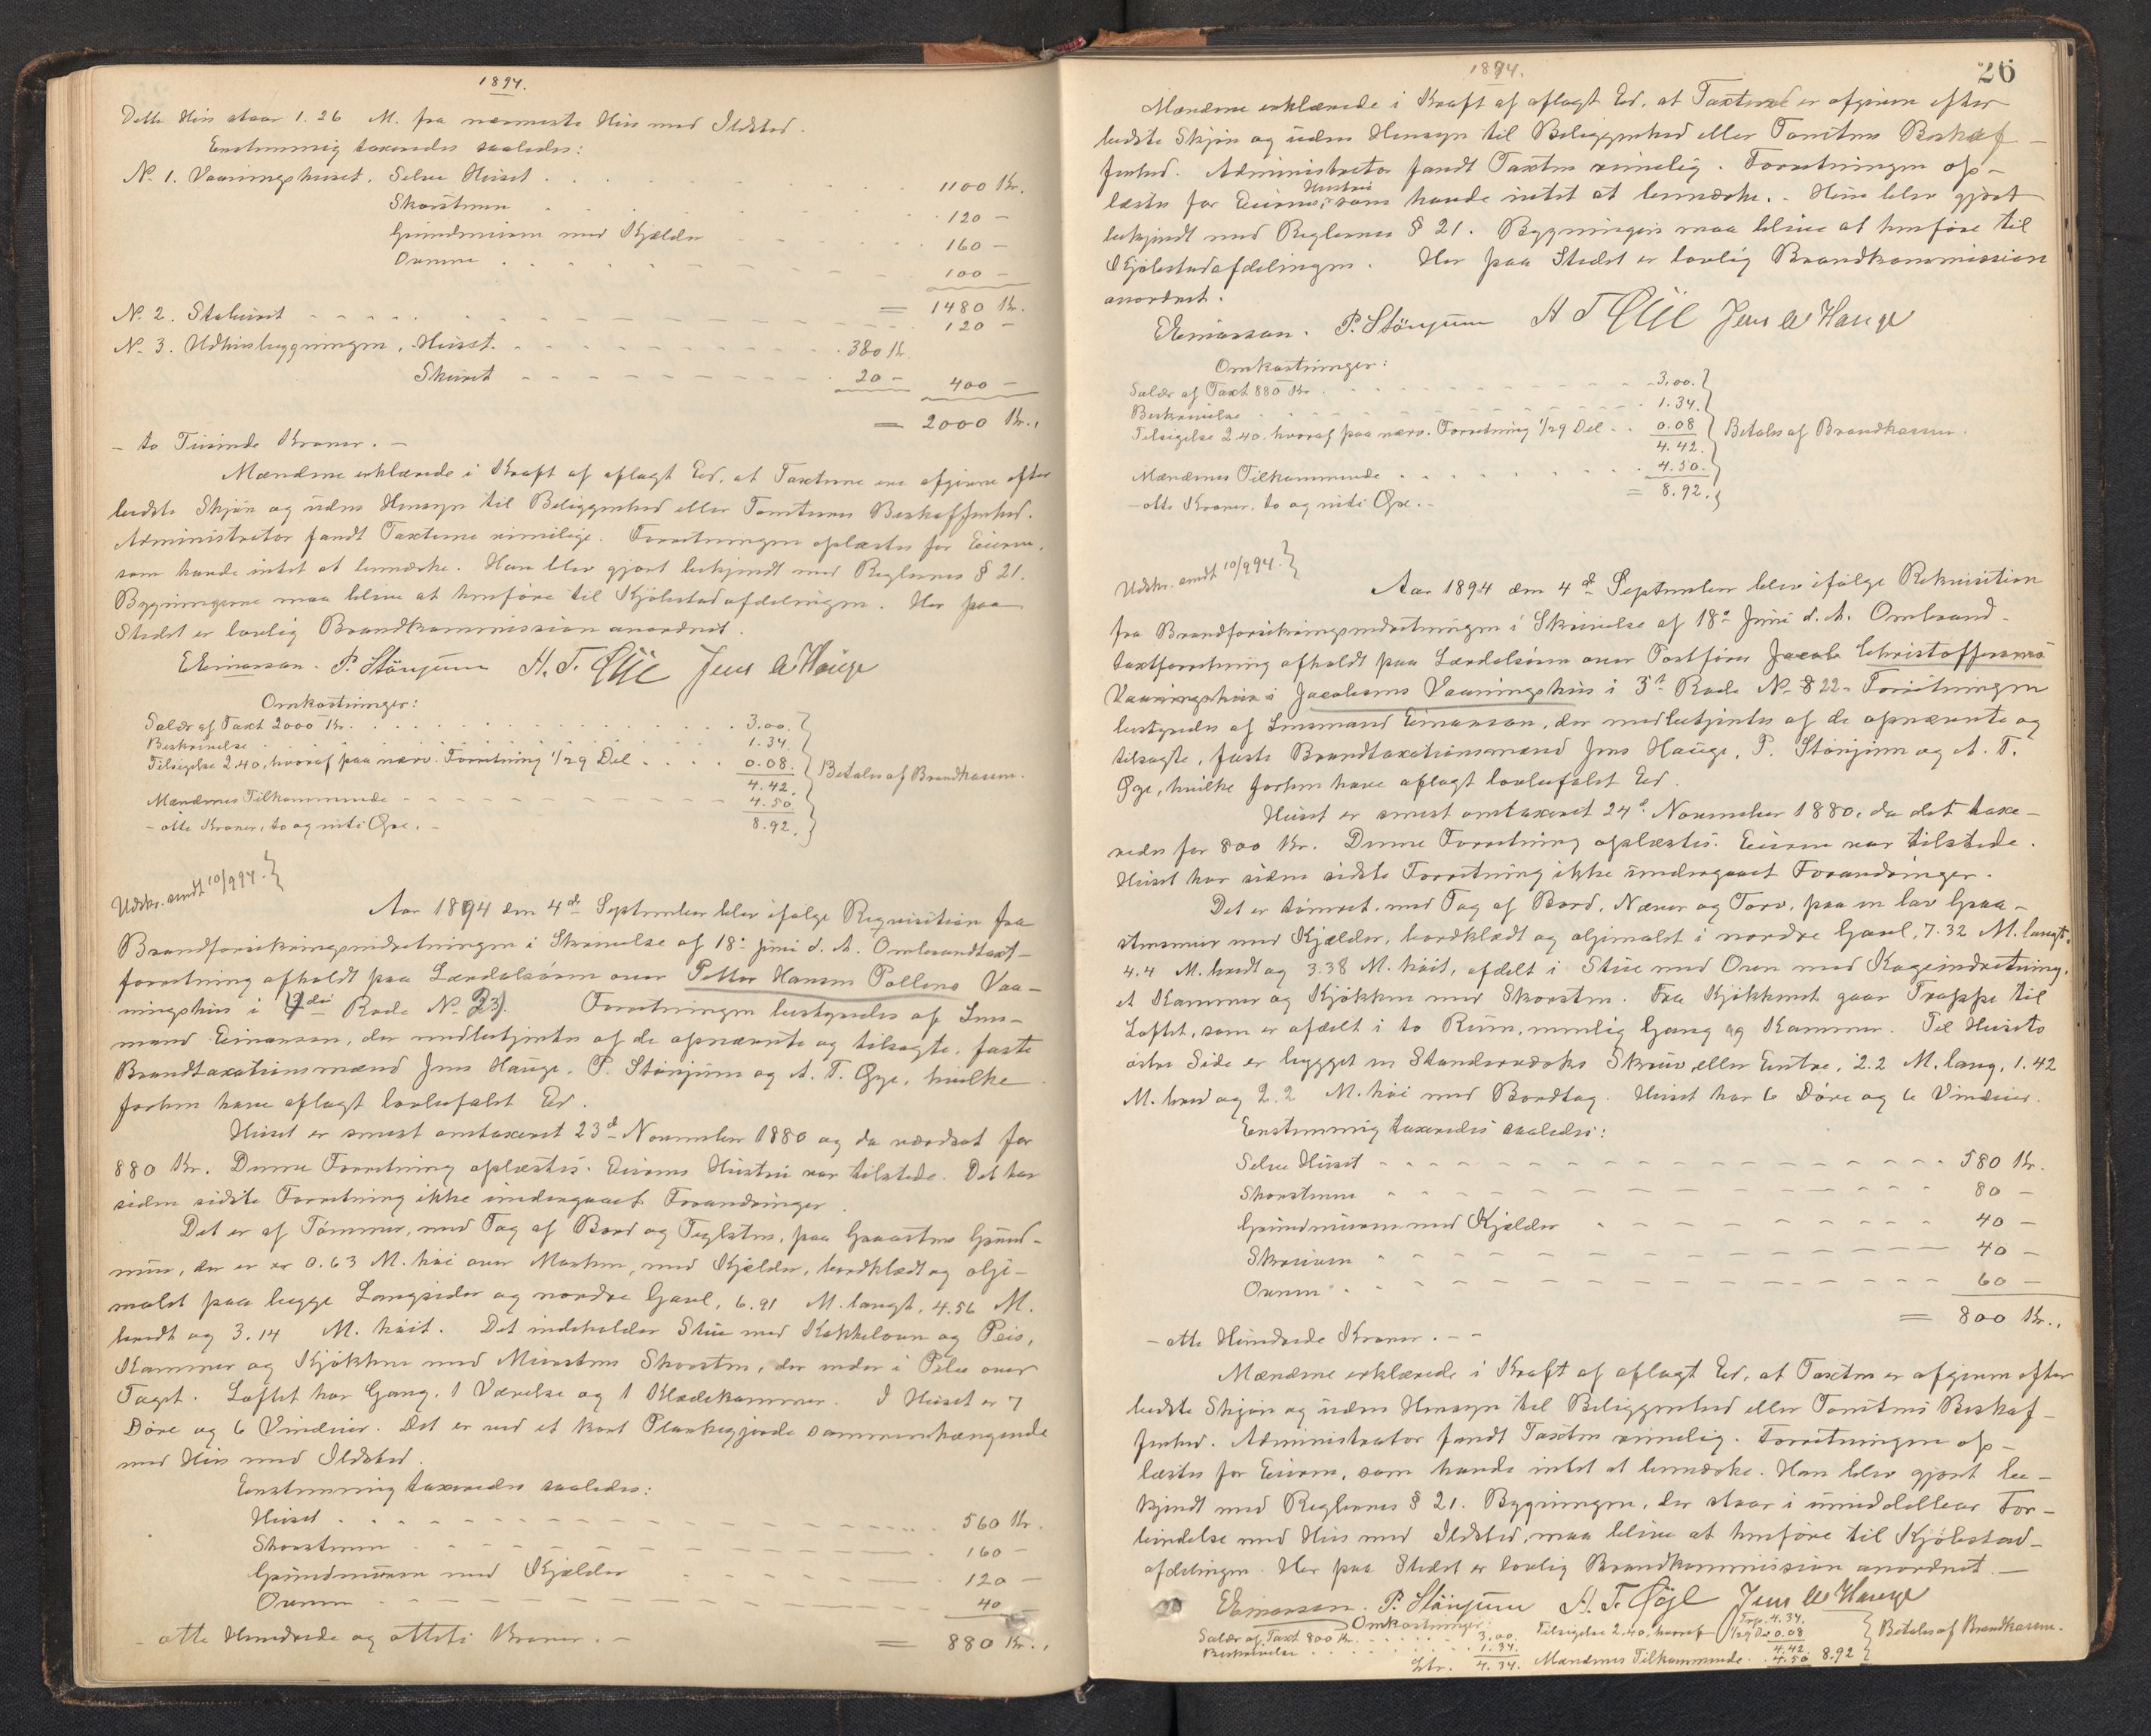 1894.
Dette Hus staar 1.26 M. fra nærmeste Hus med Ildsted.
Enstemmig taxeredes saaledes:
No. 1. Vaaningshuset. Selve Huset . . . 1100 Kr.
Skorstenen . . . 120 –
Grundmuren med Kjælder . . . 160 –
Ovnene . . . 100 –
= 1480 Kr.
No. 2. Stabburet . . . 120 –
No. 3. Udhusbygningen, Huset . . . 380 Kr.
Skuret . . . 20 – 400 –
= 2000 Kr.,
– to Tusinde Kroner. –
Mændene erklærede i Kraft af aflagt Ed, at Taxterne ere afgivne efter
bedste Skjøn og uden Hensyn til Beliggenhed eller Tomternes Beskaffenhed.
Administrator fandt Taxterne rimelige. Forretningen oplæstes for Eieren,
som havde intet at bemærke. Han blev gjort bekjendt med Reglernes § 21.
Bygningerne maa blive at henføre til Kjøbstadafdelingen. Her paa
Stedet er lovlig Brandkommission anordnet.
E Einarson. P. Stönjum A. T. Øye Jens A Hauge
Omkostninger:
Salær af Taxt 2000 Kr. . . . 3.00.
Beskrivelse . . . 1.34.
Tilsigelse 2.40, hvoraf paa nærv. Forretning 1/29 Del . . . 0.08. Betales af Brandkassen.
4.42.
Mændenes Tilkommende . . . 4.50.
– otte Kroner, to og niti Øre. – 8.92.
Udskr. sendt 10/9 94.
Aar 1894 den 4de September blev ifølge Requisition fra
Brandforsikringsindretningen i Skrivelse af 18de Juni d. A. Ombrandtaxt-
forretning afholdt paa Lærdalsøren over Petter Hansen Pollens Vaa-
ningshus i Rade No. Forretningen bestyredes af Lens-
mand Einarson, der medbetjentes af de opnævnte og tilsagte, faste
Brandtaxationsmænd Jens Hauge, P. Stönjum og A. T. Øye, hvilke
forhen have aflagt lovbefalet Ed.
Huset er senest omtaxeret 23de November 1880 og da værdsat for
880 Kr. Denne Forretning oplæstes. Eierens Hustru var tilstede. Det har
siden sidste Forretning ikke undergaaet Forandringer.
Det er af Tømmer, med Tag af Bord og Teglsten, paa Graastens Grund-
mur, der er 0.63 M. høi over Marken, med Kjælder, bordklædt og olje-
malet paa begge Langsider og nordre Gavl, 6.91 M. langt, 4.56 M.
bredt og 3.14 M. høit. Det indeholder Stue med Kakkelovn og Peis,
Kammer og Kjøkken med Murstens Skorsten, der ender i Pibe over
Taget. Loftet har Gang, 1 Værelse og 1 Klædekammer. I Huset er 7
Døre og 6 Vinduer. Det er ved et kort Plankegjerde sammenhængende
med Hus med Ildsted.
Enstemmig taxeredes saaledes:
Huset . . . 560 Kr.
Skorstenen . . . 160 –
Grundmuren med Kjælder . . . 120 –
Ovnen . . . 40 –
– otte Hundrede og ottiti Kroner. – = 880 Kr.,
1894. 26
Mændene erklærede i Kraft af aflagt Ed, at Taxten er afgiven efter
bedste Skjøn og uden Hensyn til Beliggenhed eller Tomtens Beskaf-
fenhed. Administrator fandt Taxten rimelig. Forretningen op-
læstes for Eierens Hustru, som havde intet at bemærke. Hun blev gjort
bekjendt med Reglernes § 21. Bygningen maa blive at henføre til
Kjøbstadafdelingen. Her paa Stedet er lovlig Brandkommission
anordnet.
E Einarson. P. Stönjum A T Øye Jens A Hauge
Omkostninger:
Salær af Taxt 880 Kr. . . . 3.00.
Beskrivelse . . . 1.34.
Tilsigelse 2.40, hvoraf paa nærv. Forretning 1/29 Del . . 0.08 Betales af Brandkassen.
4.42.
Mændenes Tilkommende . . . 4.50.
– otte Kroner, to og niti Øre. – = 8.92.
Udskr. sendt 10/9 94.
Aar 1894 den 4de September blev ifølge Rekvisition
fra Brandforsikringsindretningen i Skrivelse af 18de Juni d. A. Ombrand-
taxtforretning afholdt paa Lærdalsøren over Postfører Jacob Christoffersens
Vaaningshus i Jacobsens Vaaningshus i 3de Rade No. 22. Forretningen
bestyredes af Lensmand Einarson, der medbetjentes af de opnævnte og
tilsagte, faste Brandtaxationsmænd Jens Hauge, P. Stönjum og A. T.
Øye, hvilke forhen have aflagt lovbefalet Ed.
Huset er senest omtaxeret 24de November 1880, da det taxe-
redes for 800 Kr. Denne Forretning oplæstes. Eieren var tilstede.
Huset har siden sidste Forretning ikke undergaaet Forandringer.
Det er tømret, med Tag af Bord, Næver og Torv, paa en lav Graa-
stensmur med Kjælder, bordklædt og oljemalet i nordre Gavl, 7.32 M. langt,
4.4 M. bredt og 3.38 M. høit, afdelt i Stue med Ovn med Kogeindretning,
et Kammer og Kjøkken med Skorsten. Fra Kjøkkenet gaar Trappe til
Loftet, som er afdelt i to Rum, nemlig Gang og Kammer. Til Husets
østre Side er bygget en Standværks Skruv eller Entre, 2.2 M. lang, 1.42
M. bred og 2.2 M. høi med Bordtag. Huset har 6 Døre og 6 Vinduer.
Enstemmig taxeredes saaledes:
Selve Huset . . . 580 Kr.
Skorstenen . . . 80 –
Grundmuren med Kjælder . . . 40 –
Skruven . . . 40 –
Ovnen . . . 60 –
= 800 Kr.,
– otte Hundrede Kroner. – –
Mændene erklærede i Kraft af aflagt Ed, at Taxten er afgiven efter
bedste Skjøn og uden Hensyn til Beliggenhed eller Tomtens Beskaf-
fenhed. Administrator fandt Taxten rimelig. Forretningen op-
læstes for Eieren, som havde intet at bemærke. Han blev gjort be-
kjendt med Reglernes § 21. Bygningen, der staar i umiddelbar For-
bindelse med Hus med Ildsted, maa blive at henføre til Kjøbstad-
afdelingen. Her paa Stedet er lovlig Brandkommission anordnet. –
E Einarson. P. Stönjum A. T. Øye Jens A Hauge
Omkostninger: Trp. 4.34.
Salær af Taxt 800 Kr. . . . 3.00. Tilsigelse 2.40, hvoraf 1/29 Del 0.08 Betales af Brandkassen.
Beskrivelse . . . 1.34. 4.42
Ltr. 4.34. Mændenes Tilkommende . . 4.50 8.92